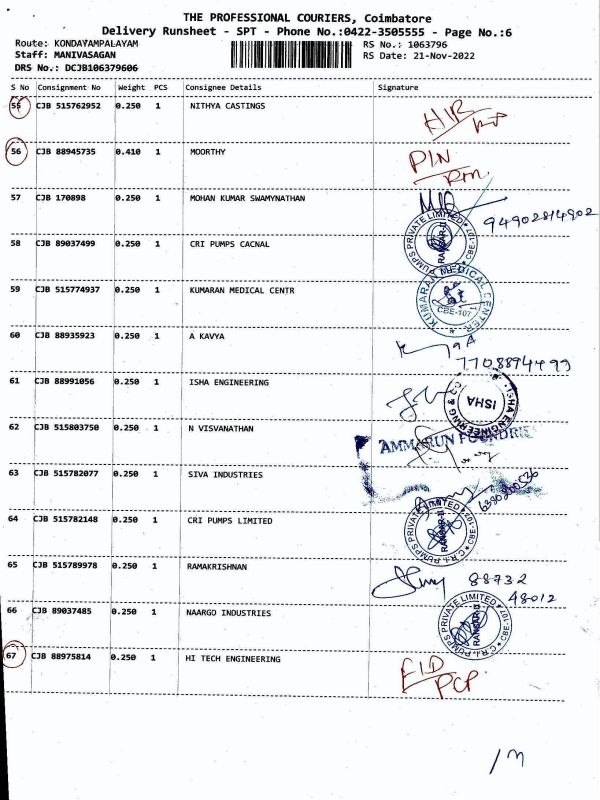 THE PROFESSIONAL COURIERS, Coimbatore
Delivery Runsheet - SPT - Phone No.:0422-3505555 - Page No.:6
Route: KONDAYAMPALAYAM RS No.: 1063796
Staff: MANIVASAGAN RS Date: 21-Nov-2022
DRS No.: DCJB106379606
S No Consignment No Weight PCS Consignee Details Signature
55 CJB 515762952 0.250 1 NITHYA CASTINGS
56 CJB 88945735 0.410 1 MOORTHY PIN
57 CJB 170898 0.250 1 MOHAN KUMAR SWAMYNATHAN
94902814902
58 CJB 89037499 0.250 1 CRI PUMPS CACNAL
PUMPS PRIVATE LIMITED
59 CJB 515774937 0.250 1 KUMARAN MEDICAL CENTR
KUMARAN MEDICAL CENTER
CBE-107
60 CJB 88935923 0.250 1 A KAVYA
7708894499
61 CJB 88991056 0.250 1 ISHA ENGINEERING
ISHA ENGINEERING & CO
ISHA
62 CJB 515803750 0.250 1 N VISVANATHAN
AMMARUN FOUNDRIES
63 CJB 515782077 0.250 1 SIVA INDUSTRIES
64 CJB 515782148 0.250 1 CRI PUMPS LIMITED
C.R.I. PUMPS PRIVATE LIMITED
65 CJB 515789978 0.250 1 RAMAKRISHNAN
88732
48012
66 CJB 89037485 0.250 1 NAARGO INDUSTRIES
C.R.I. PUMPS PRIVATE LIMITED
67 CJB 88975814 0.250 1 HI TECH ENGINEERING
PCP